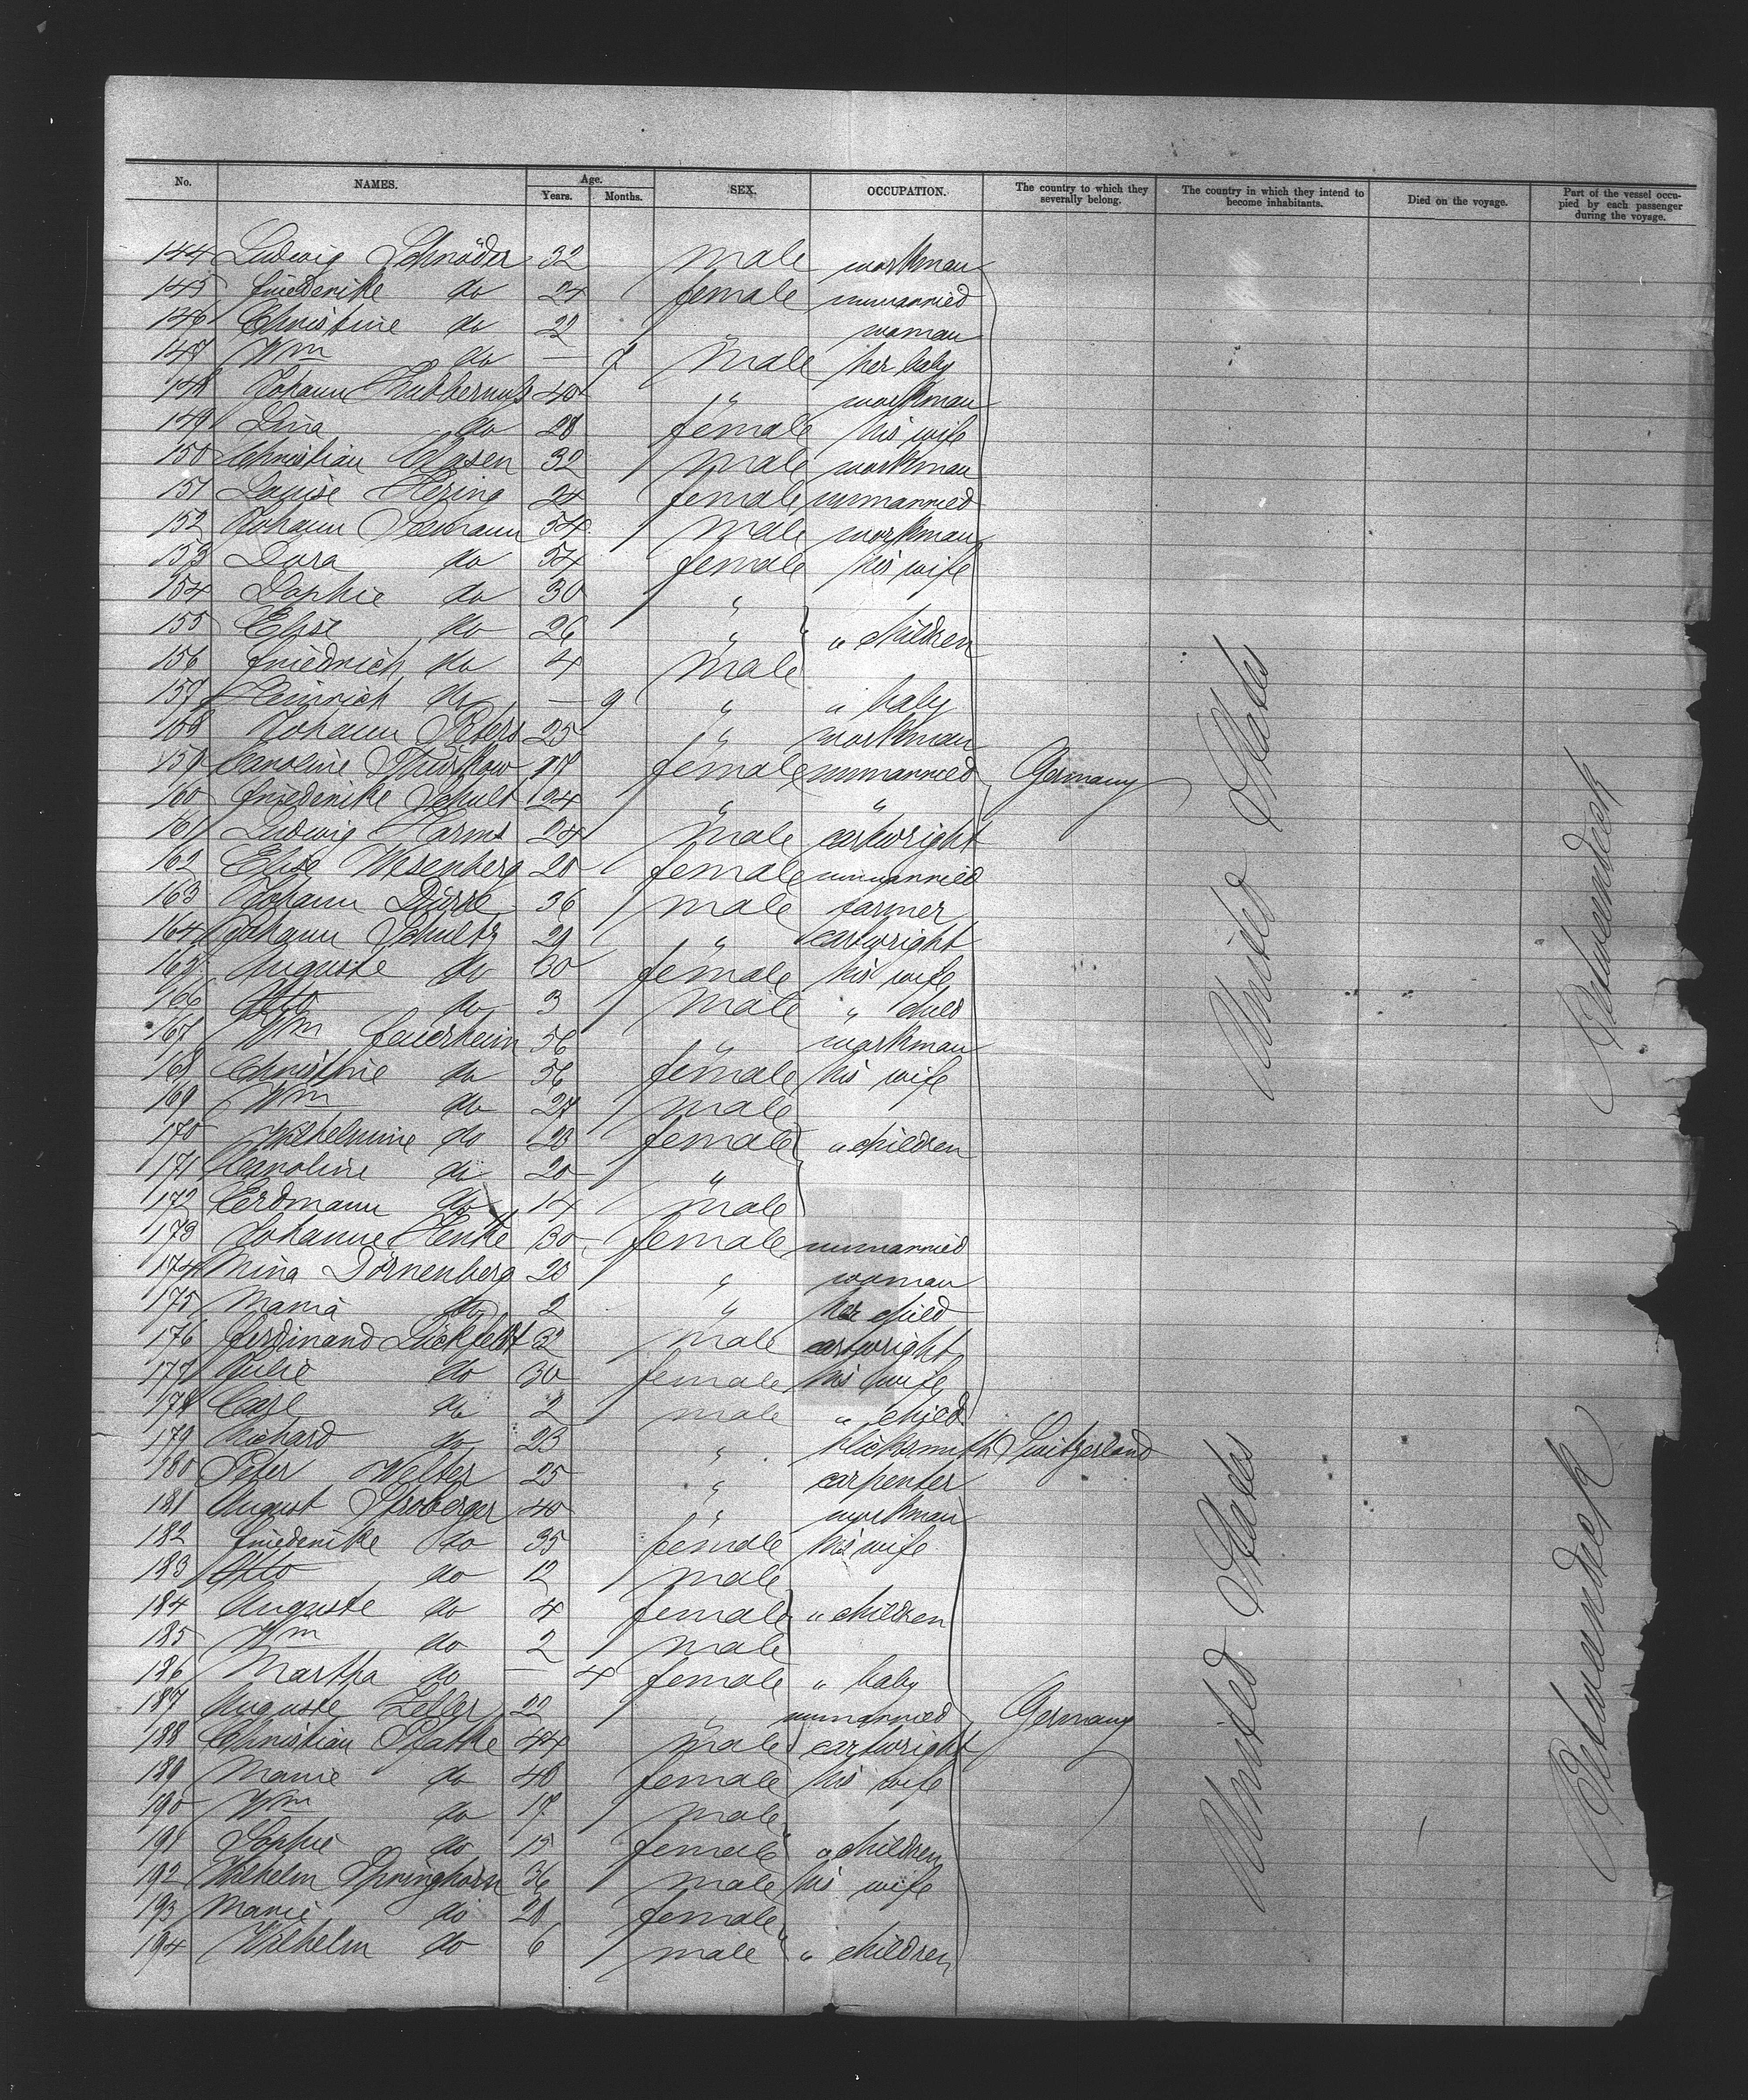 No. NAMES. Age. Years. Months. SEX. OCCUPATION. The country to which they severally belong. The country in which they intend to become inhabitants. Died on the voyage. Part of the vessel occupied by each passenger during the voyage.
144 Ludwig Schröder 32 male workman
145 Friederike do 24 female unmarried
146 Christine do 22 " woman
147 Wm do — 7 male her baby
148 Johann 40 " workman
149 Lina do 28 female his wife
150 Christian Clasen 32 male workman
151 Louise Hering 24 female unmarried
152 Johann Seemann 54 male workman
153 Dora do 54 female his wife
154 Sophie do 30 "
155 Elise do 26 " " children
156 Friedrich do 4 male
157 Heinrich do — 9 " " baby
158 Johann Peters 25 " workman
159 Caroline 17 female unmarried Germany
160 Friederike Schult 24 " "
161 Ludwig Harms 24 male cartwright
162 Elise Wesenberg 20 female unmarried
163 Johann Dürre 36 male farmer
164 Johann Schultz 29 " cartwright
165 Auguste do 30 female his wife
166 Otto do 3 male " child
167 Wm Feuerheim 56 " workman
168 Christine do 56 female his wife
169 Wm do 27 male
170 Wilhelmine do 23 female " children
171 Caroline do 20 "
172 Erdmann do 14 male
173 Johanne Henke 30 female unmarried
174 Mina Dörnenberg 20 " woman
175 Maria do 2 " her child
176 Ferdinand Lückfeldt 32 male cartwright
177 Julie do 30 female his wife
178 Carl do 2 male " child
179 Richard do 23 " blacksmith Switzerland
180 Peter Welter 25 " carpenter
181 August Stroberger 40 " workman
182 Friederike do 35 female his wife
183 Otto do 12 male
184 Auguste do 4 female " children
185 Wm do 2 male
186 Martha do — 4 female " baby
187 Auguste Zeller 22 " unmarried Germany
188 Christian Plathe 44 male cartwright
189 Marie do 48 female his wife
190 Wm do 17 male
191 Sophie do 15 female " children
192 Wilhelm Springhorn 36 male his wife
193 Marie do 28 female
194 Wilhelm do 6 male " children
United States
Betweendeck
United States
Betweendeck